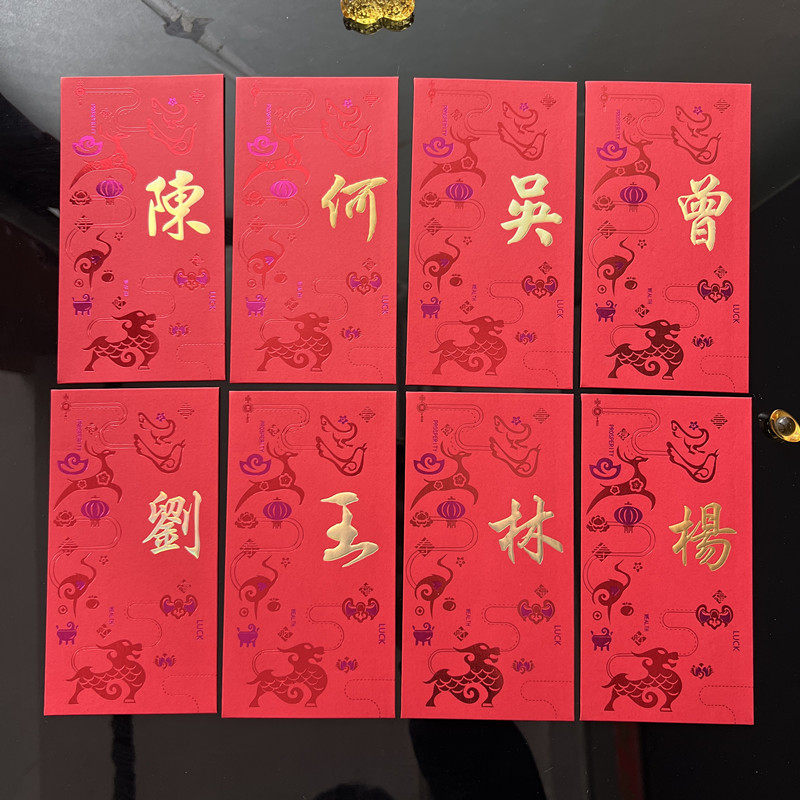 PROSPERITY
陳
HEALTH
LUCK
PROSPERITY
何
HEALTH
LUCK
PROSPERITY
吳
HEALTH
LUCK
PROSPERITY
曾
HEALTH
LUCK
PROSPERITY
劉
HEALTH
LUCK
PROSPERITY
王
HEALTH
LUCK
PROSPERITY
林
HEALTH
LUCK
PROSPERITY
楊
HEALTH
LUCK